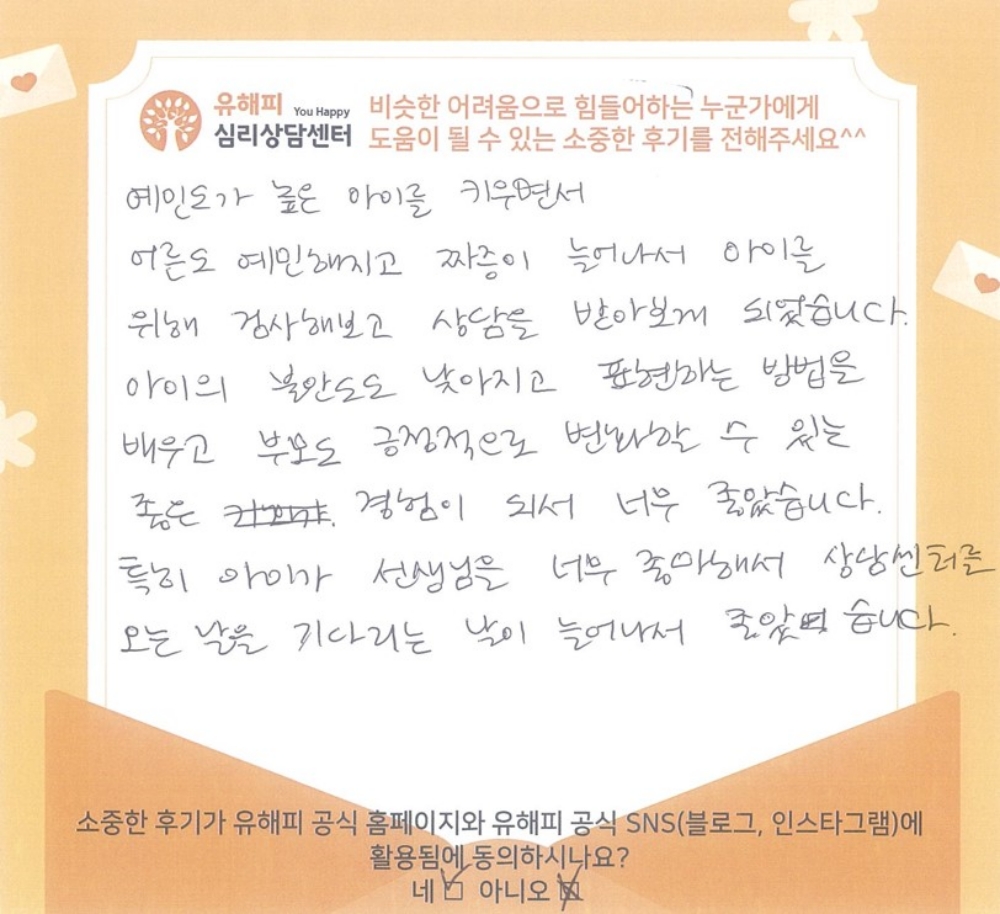 유해피 You Happy
심리상담센터
비슷한 어려움으로 힘들어하는 누군가에게
도움이 될 수 있는 소중한 후기를 전해주세요^^
예민도가 높은 아이를 키우면서
어른도 예민해지고 짜증이 늘어나서 아이를
위해 검사해보고 상담을 받아보게 되었습니다.
아이의 불안도도 낮아지고 표현하는 방법을
배우고 부모도 긍정적으로 변화할 수 있는
좋은 경험이 되서 너무 좋았습니다.
특히 아이가 선생님을 너무 좋아해서 상담센터를
오는 날을 기다리는 날이 늘어나서 좋았습니다.
소중한 후기가 유해피 공식 홈페이지와 유해피 공식 SNS(블로그, 인스타그램)에
활용됨에 동의하시나요?
네 아니오